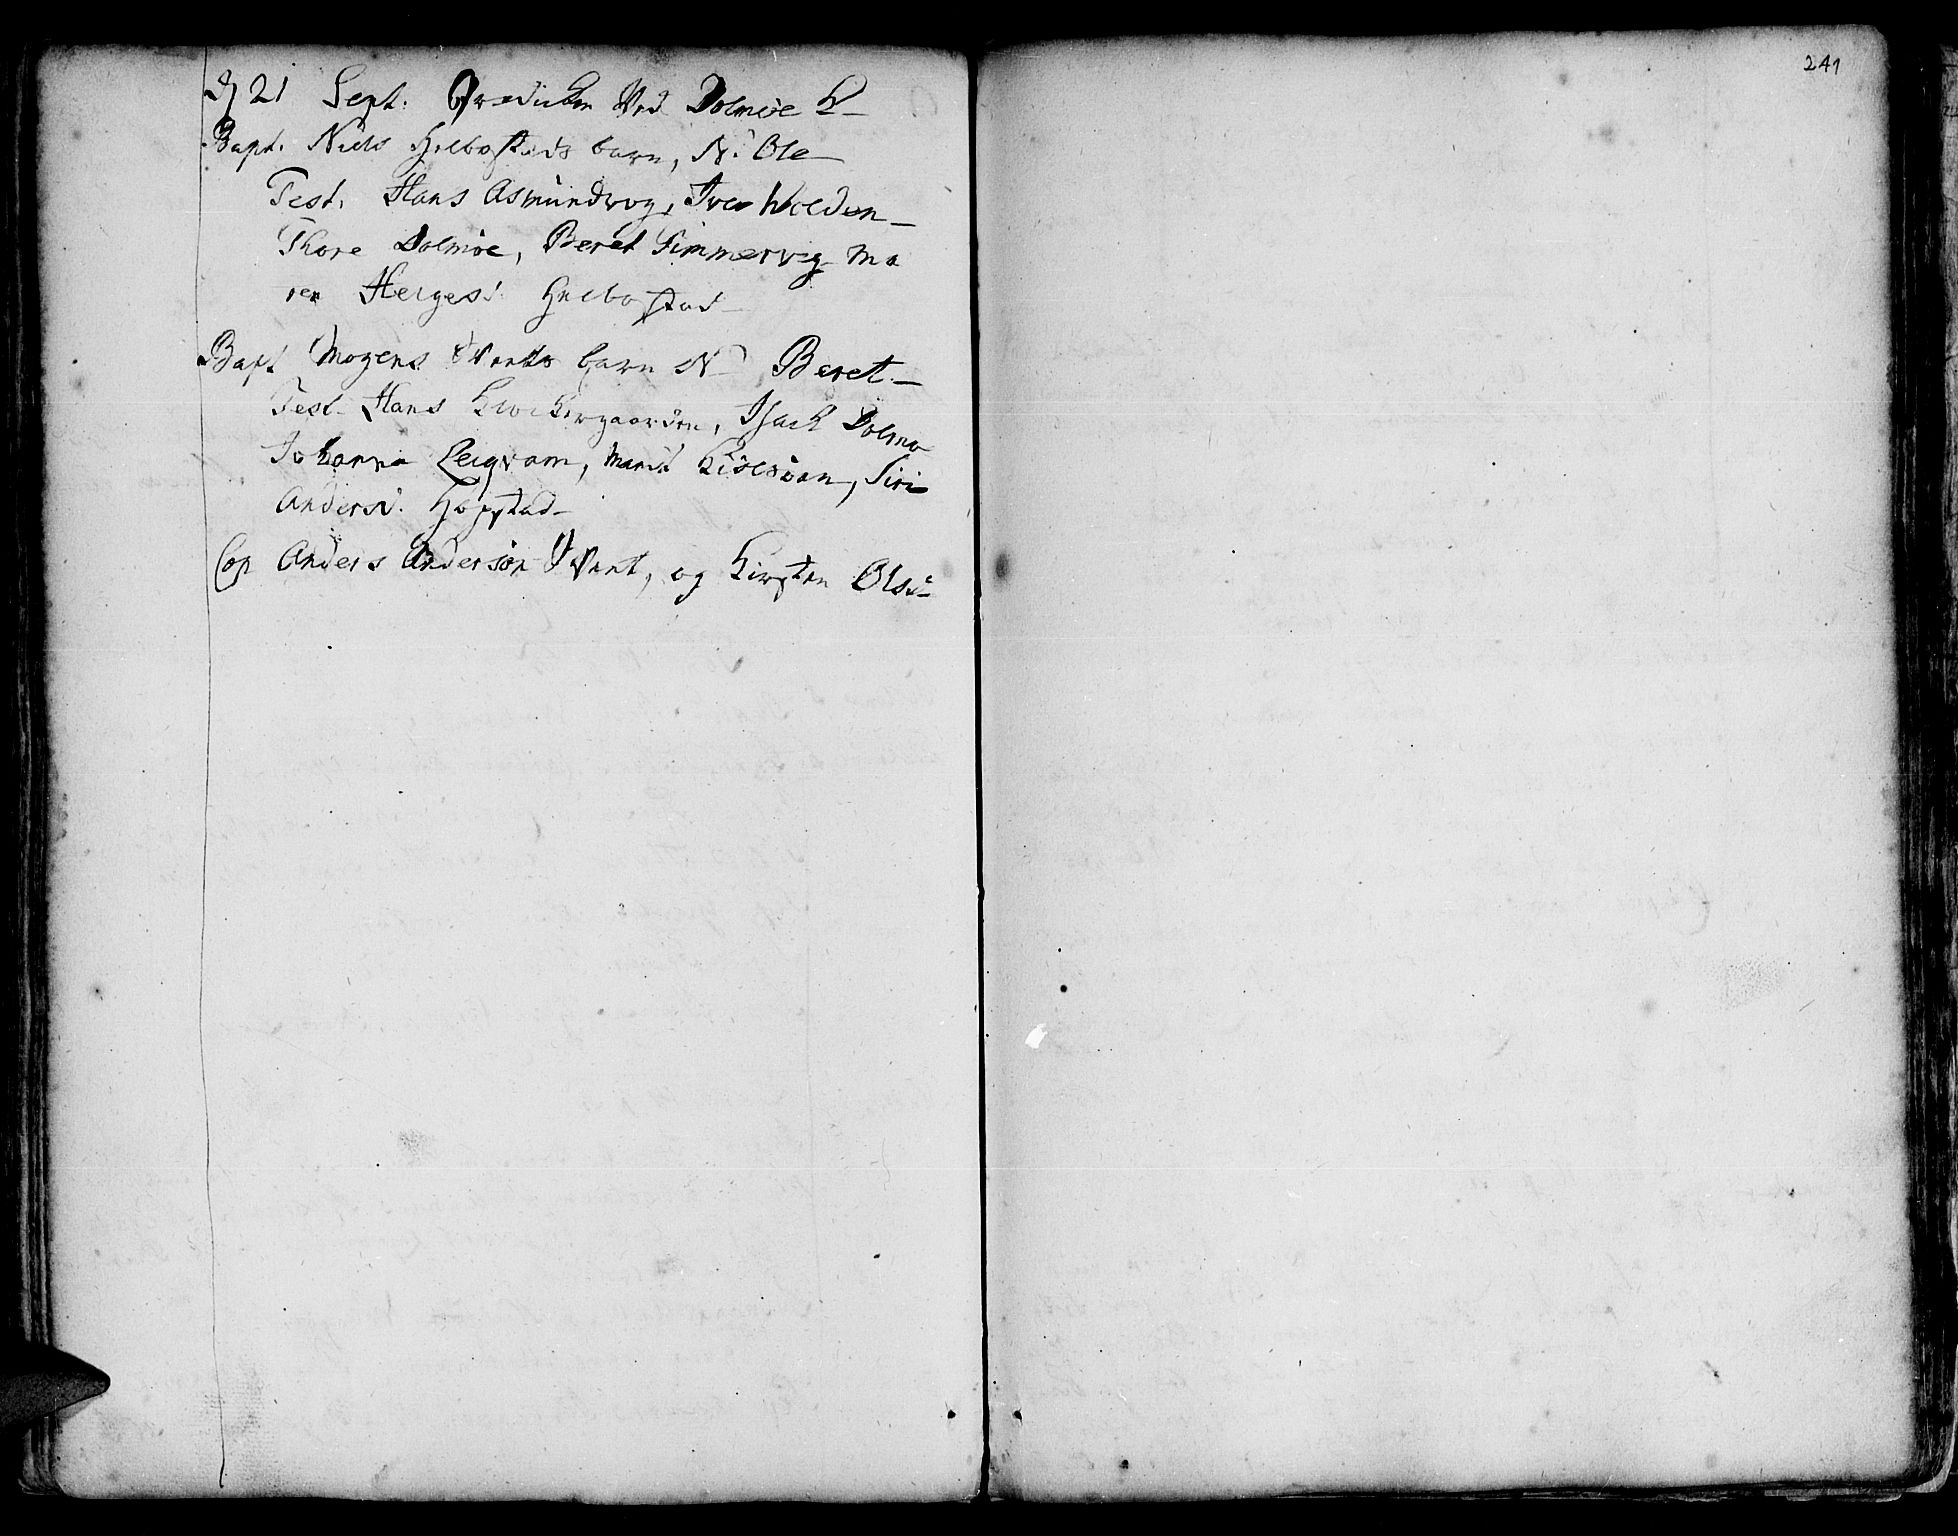 241
D 21 Sept. Prædicken Ved Dolmøe K
Bapt. Niels Helbostads barn, N. Ole
Test. Hans Asmundvog, Iver Wolden
Thore Dolmøe, Beret Simmervig Ma
ren Helgesd. Helbostad
Bapt Mogens barn N Beret
Test. Hans Klockergaarden, Isach Dolmø
Johanna Leigvam, Marit Siri
Andersd. Hopstad
Cop Anders Anderson og Kirsten Olsd